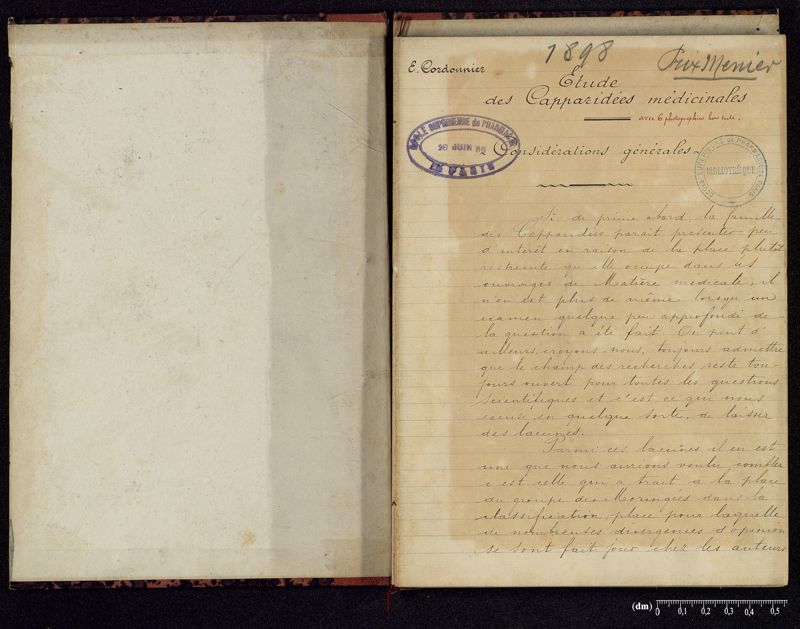 1898
Prix Menier
E. Cordonnier
Etude
des Capparidées médicinales
avec 6 photographies hors texte.
ECOLE SUPÉRIEURE de PHARMACIE
28 JUIN 98
de PARIS
ECOLE SUPERIEURE DE PHARMACIE DE PARIS
BIBLIOTHÈQUE
Considérations générales
Si de prime abord, la famille
des Capparidées parait présenter peu
d'intérêt en raison de la place plutôt
restreinte qu'elle occupe dans les
ouvrages de Matière médicale, il
n'en est plus de même lorsqu'un
examen quelque peu approfondi de
la question a été fait. On peut d'
ailleurs, croyons-nous, toujours admettre
que le champ des recherches reste tou-
jours ouvert pour toutes les questions
scientifiques et c'est ce qui nous
excuse, en quelque sorte, de laisser
des lacunes.
Parmi ces lacunes il en est
une que nous aurions voulu combler
c'est celle qui a trait à la place
du groupe des Moringées dans la
classification, place pour laquelle
de nombreuses divergences d'opinion
se sont fait jour chez les auteurs
(dm) 0 0,1 0,2 0,3 0,4 0,5